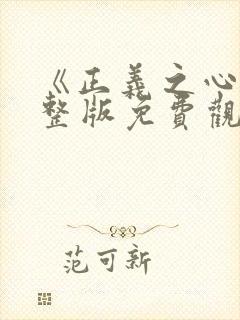 《正義之心
整版免費觀
范可新